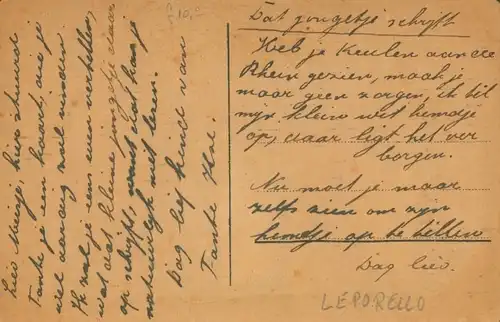 f 10,-
Lief Meisje, hier stuurd
Tante je een kaart, die je
wel aardig zal vinden.
Ik zal je eens even vertellen,
wat dat kleine jongetje daar
op schrijft, want dat kan je
natuurlijk niet lezen.
Dag lief kind van
Tante
Dat jongetje schrijft
Heb je Keulen aan de
Rhein gezien, maak je
maar geen zorgen, ik til
mijn klein wit hemdje
op, daar ligt het ver
borgen.
Nu moet je maar
zelfs zien om zijn
hemdje op te tillen
Dag lief.
LEPORELLO